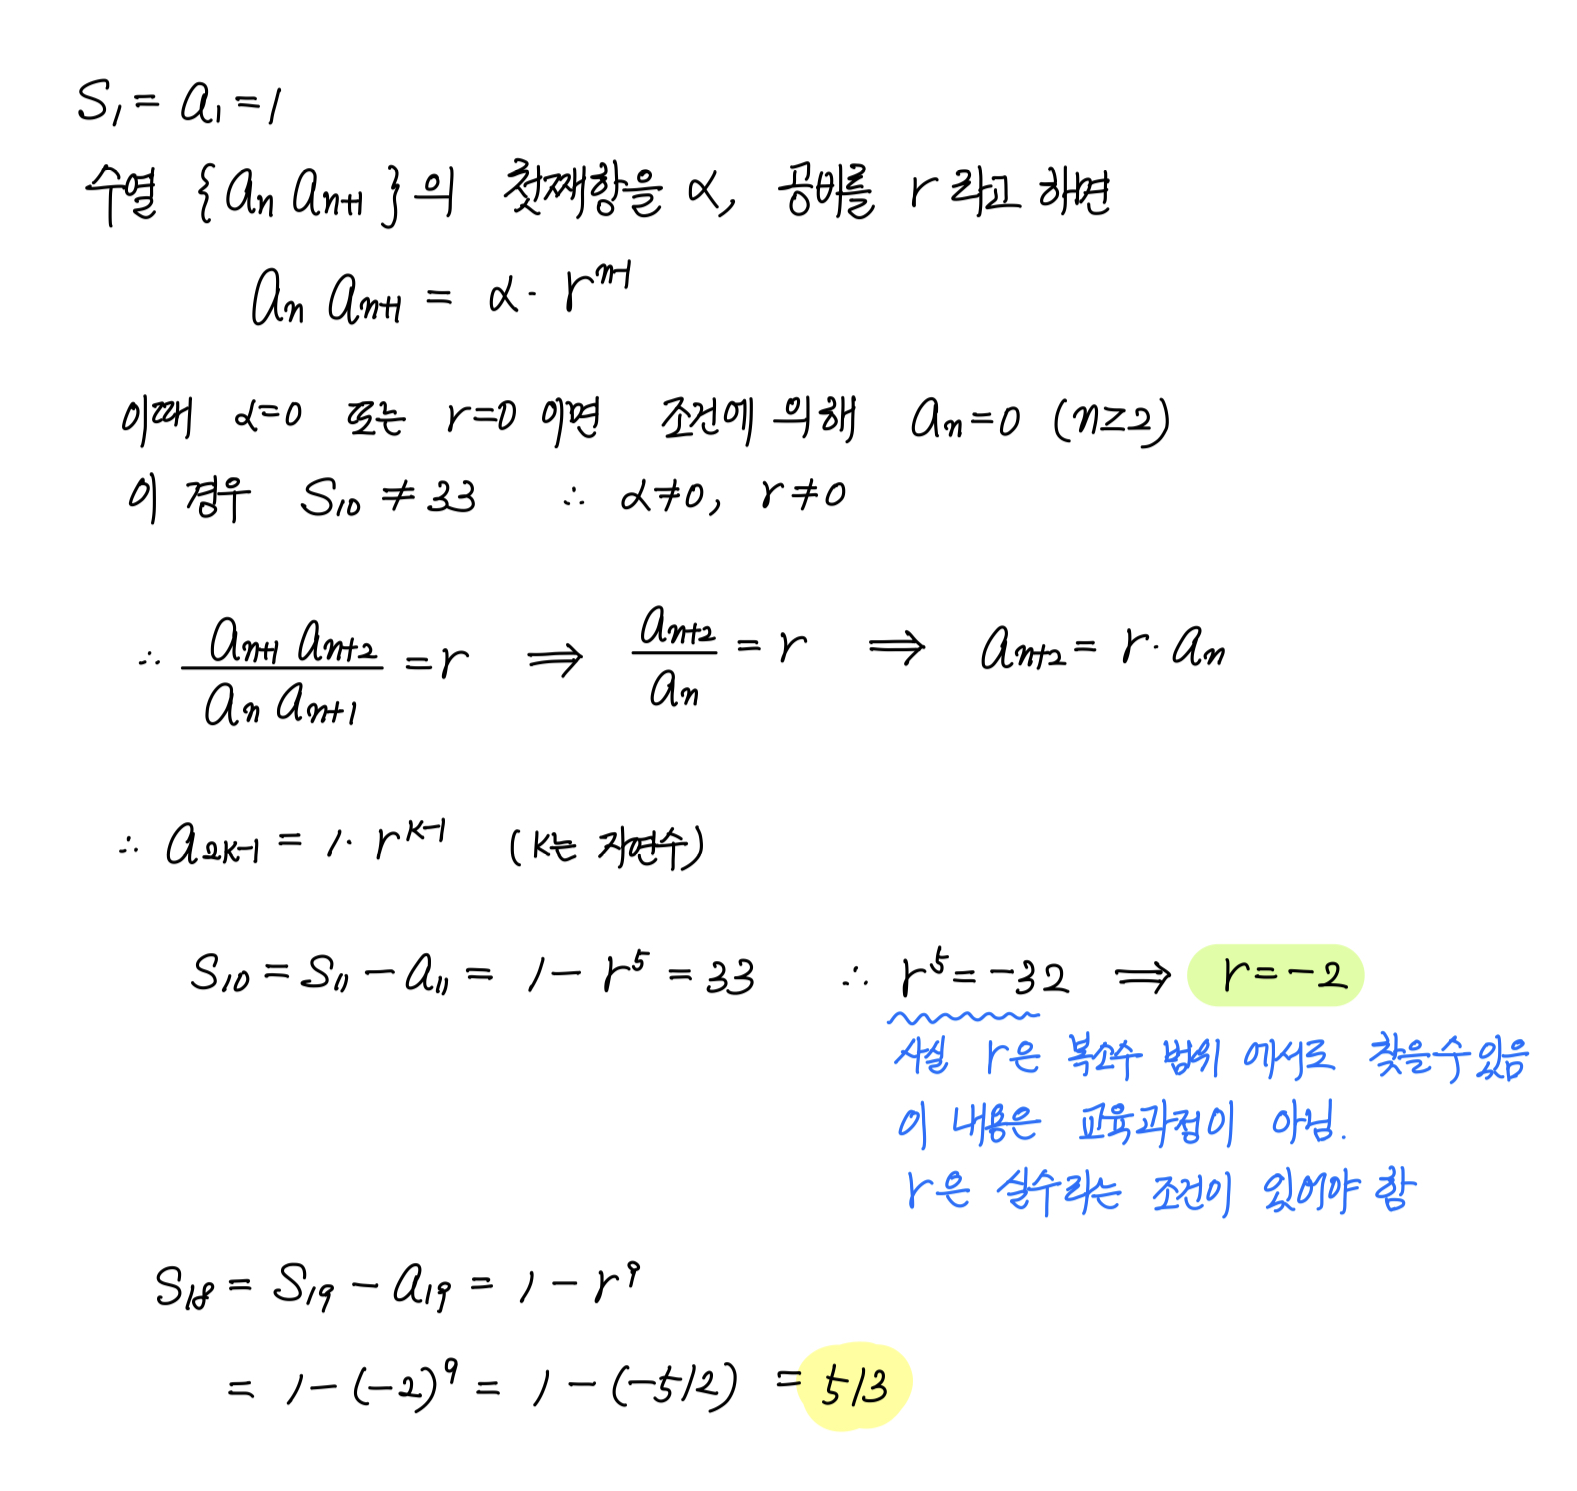 S₁ = a₁ = 1
수열 {aₙ aₙ₊₁}의 첫째항을 α, 공비를 r 라고 하면
aₙ aₙ₊₁ = α · rⁿ⁻¹
이때 α=0 또는 r=0 이면 조건에 의해 aₙ=0 (n≥2)
이 경우 S₁₀ ≠ 33 ∴ α≠0, r≠0
∴ (aₙ₊₁ aₙ₊₂)/(aₙ aₙ₊₁) = r ⟹ aₙ₊₂/aₙ = r ⟹ aₙ₊₂ = r · aₙ
∴ a_{2K-1} = 1 · r^{K-1} (K는 자연수)
S₁₀ = S₁₁ − a₁₁ = 1 − r⁵ = 33 ∴ r⁵ = −32 ⟹ r = −2
사실 r은 복소수 범위 에서로 찾을수 있음
이 내용은 교육과정이 아님.
r은 실수라는 조건이 있어야 함
S₁₈ = S₁₉ − a₁₉ = 1 − r⁹
= 1 − (−2)⁹ = 1 − (−512) = 513